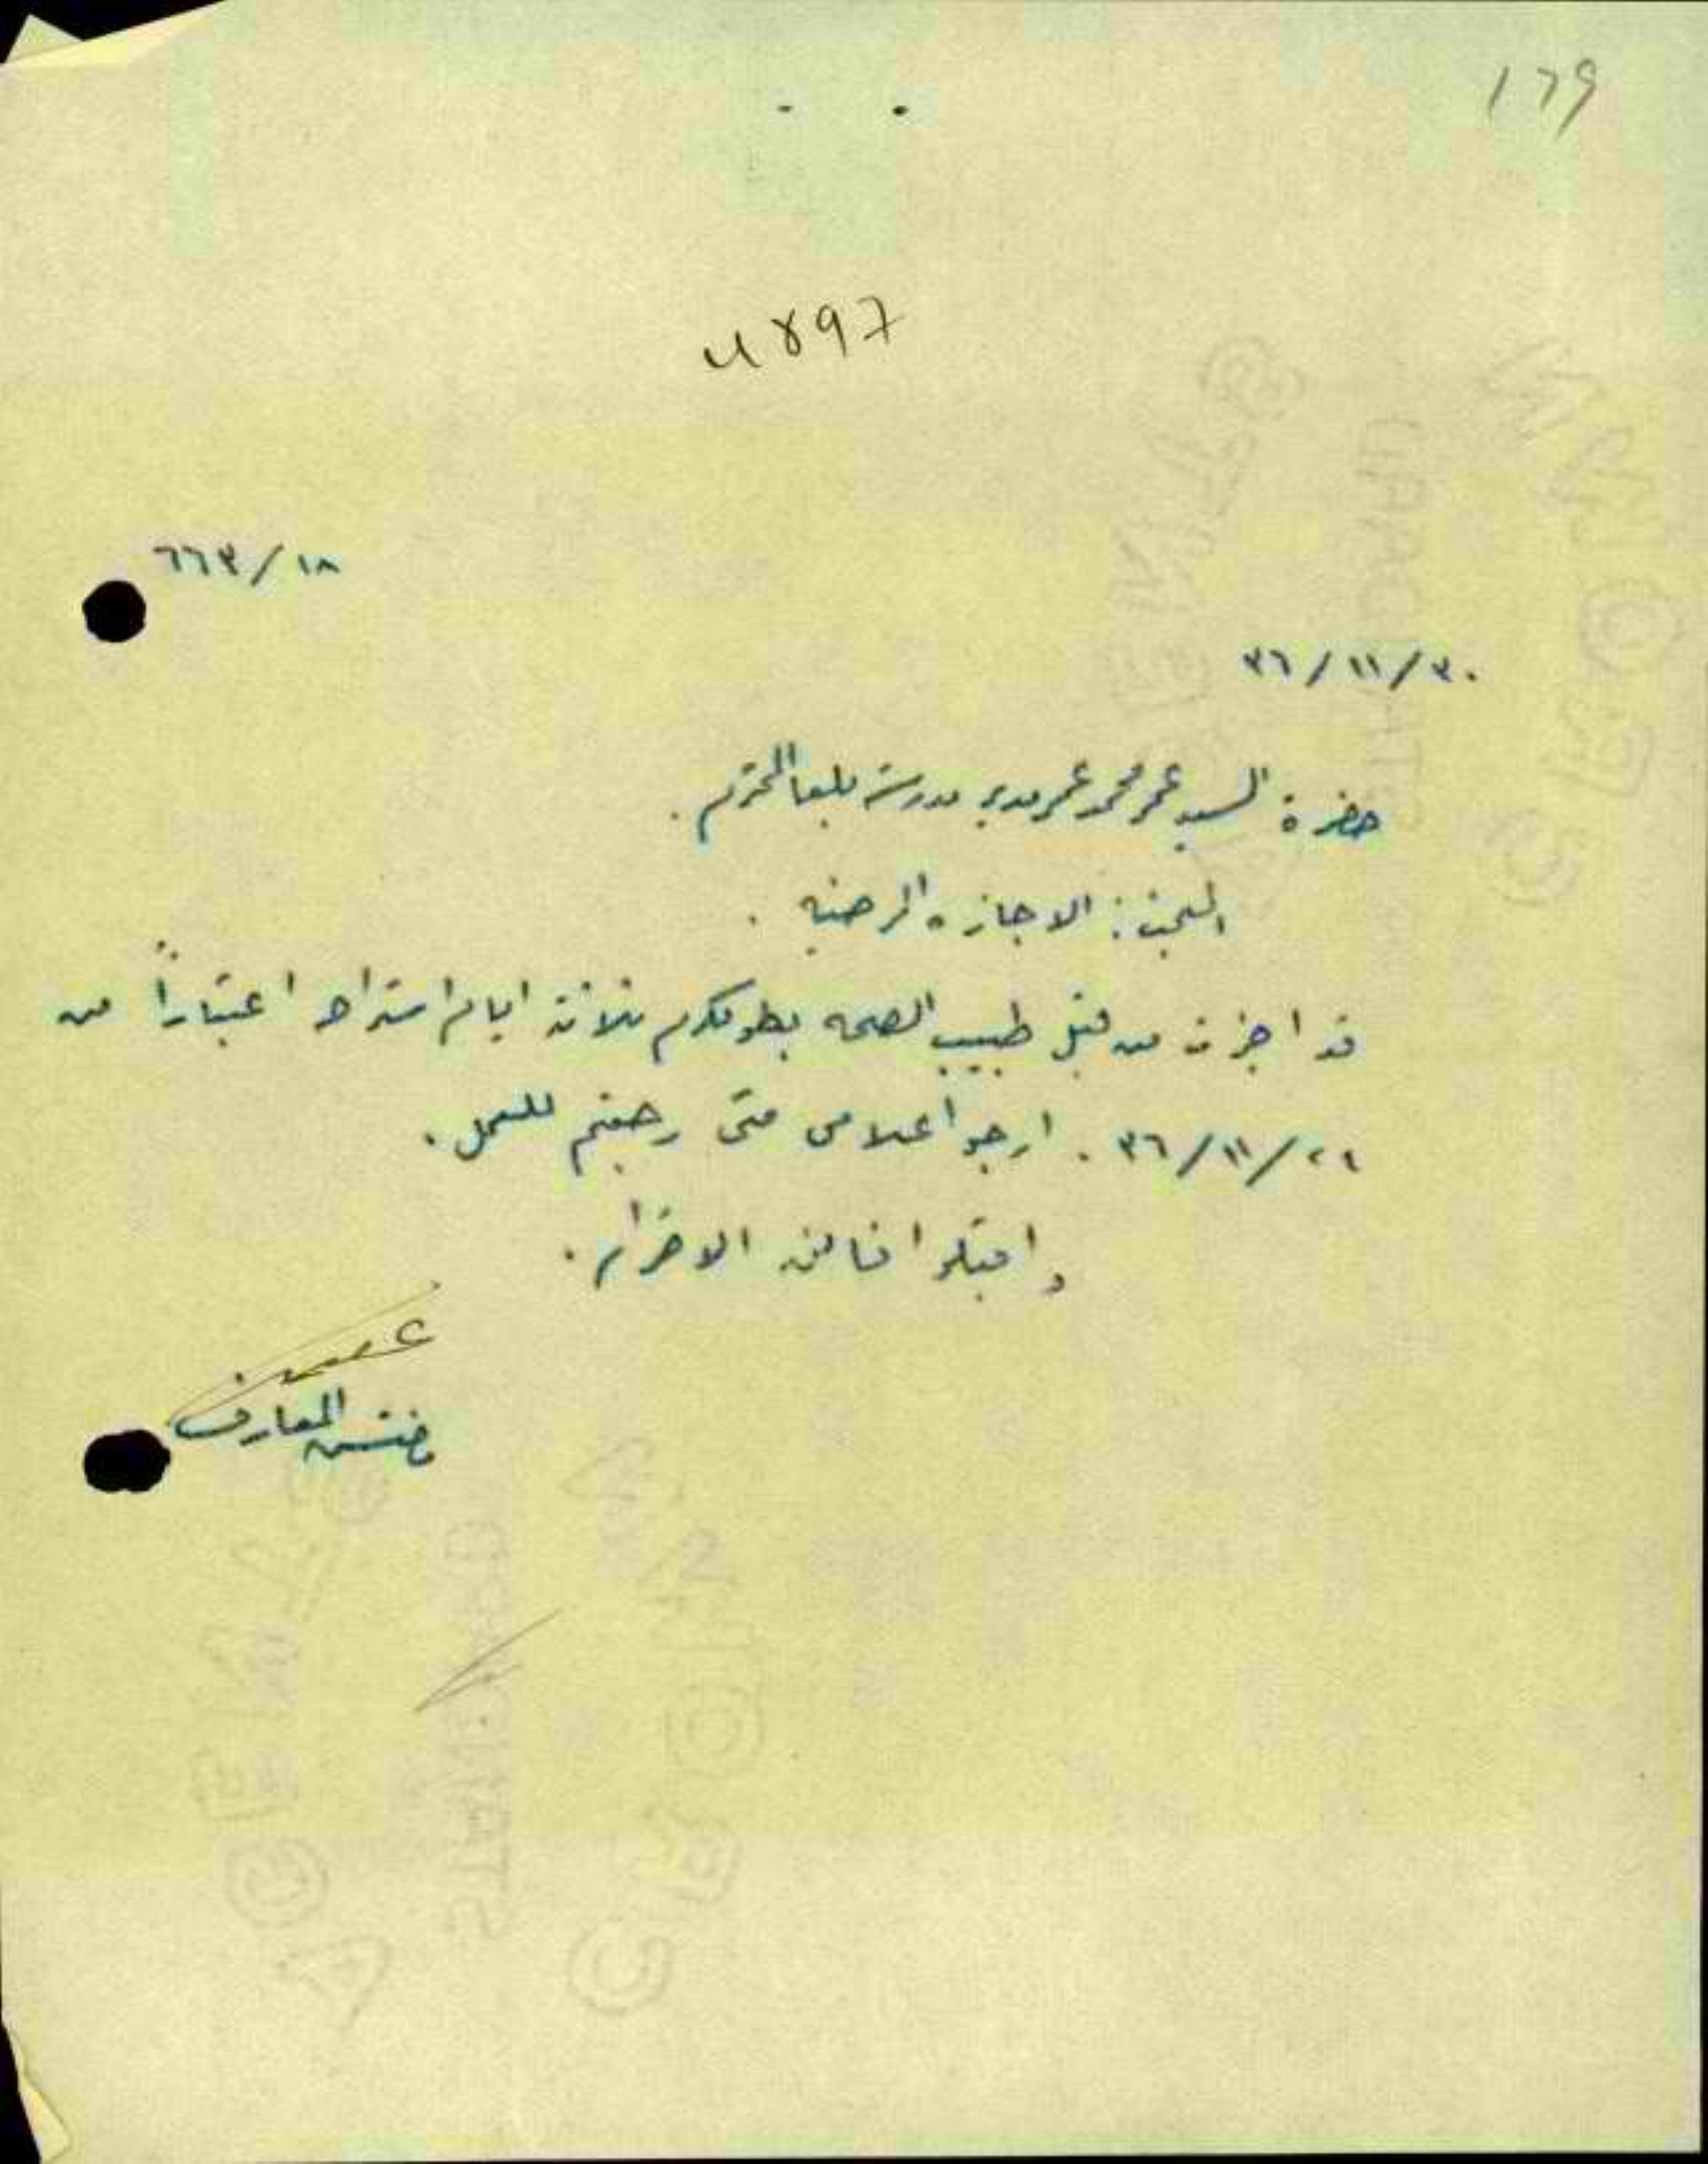 179
4897
١٨/٦٦٣
٣٠/١١/٣٦
حضرة السيد عمر محمد عمر مدير مدرسة بلعا المحترم.
المبحث: الاجازه المرضيه.
قد اجزت من قبل طبيب الصحه بطولكرم ثلاثة ايام استراحه اعتباراً من
٢٩/١١/٣٦. ارجو اعلامي متى رجعتم للعمل.
واقبلوا فائق الاحترام.
مفتش المعارف